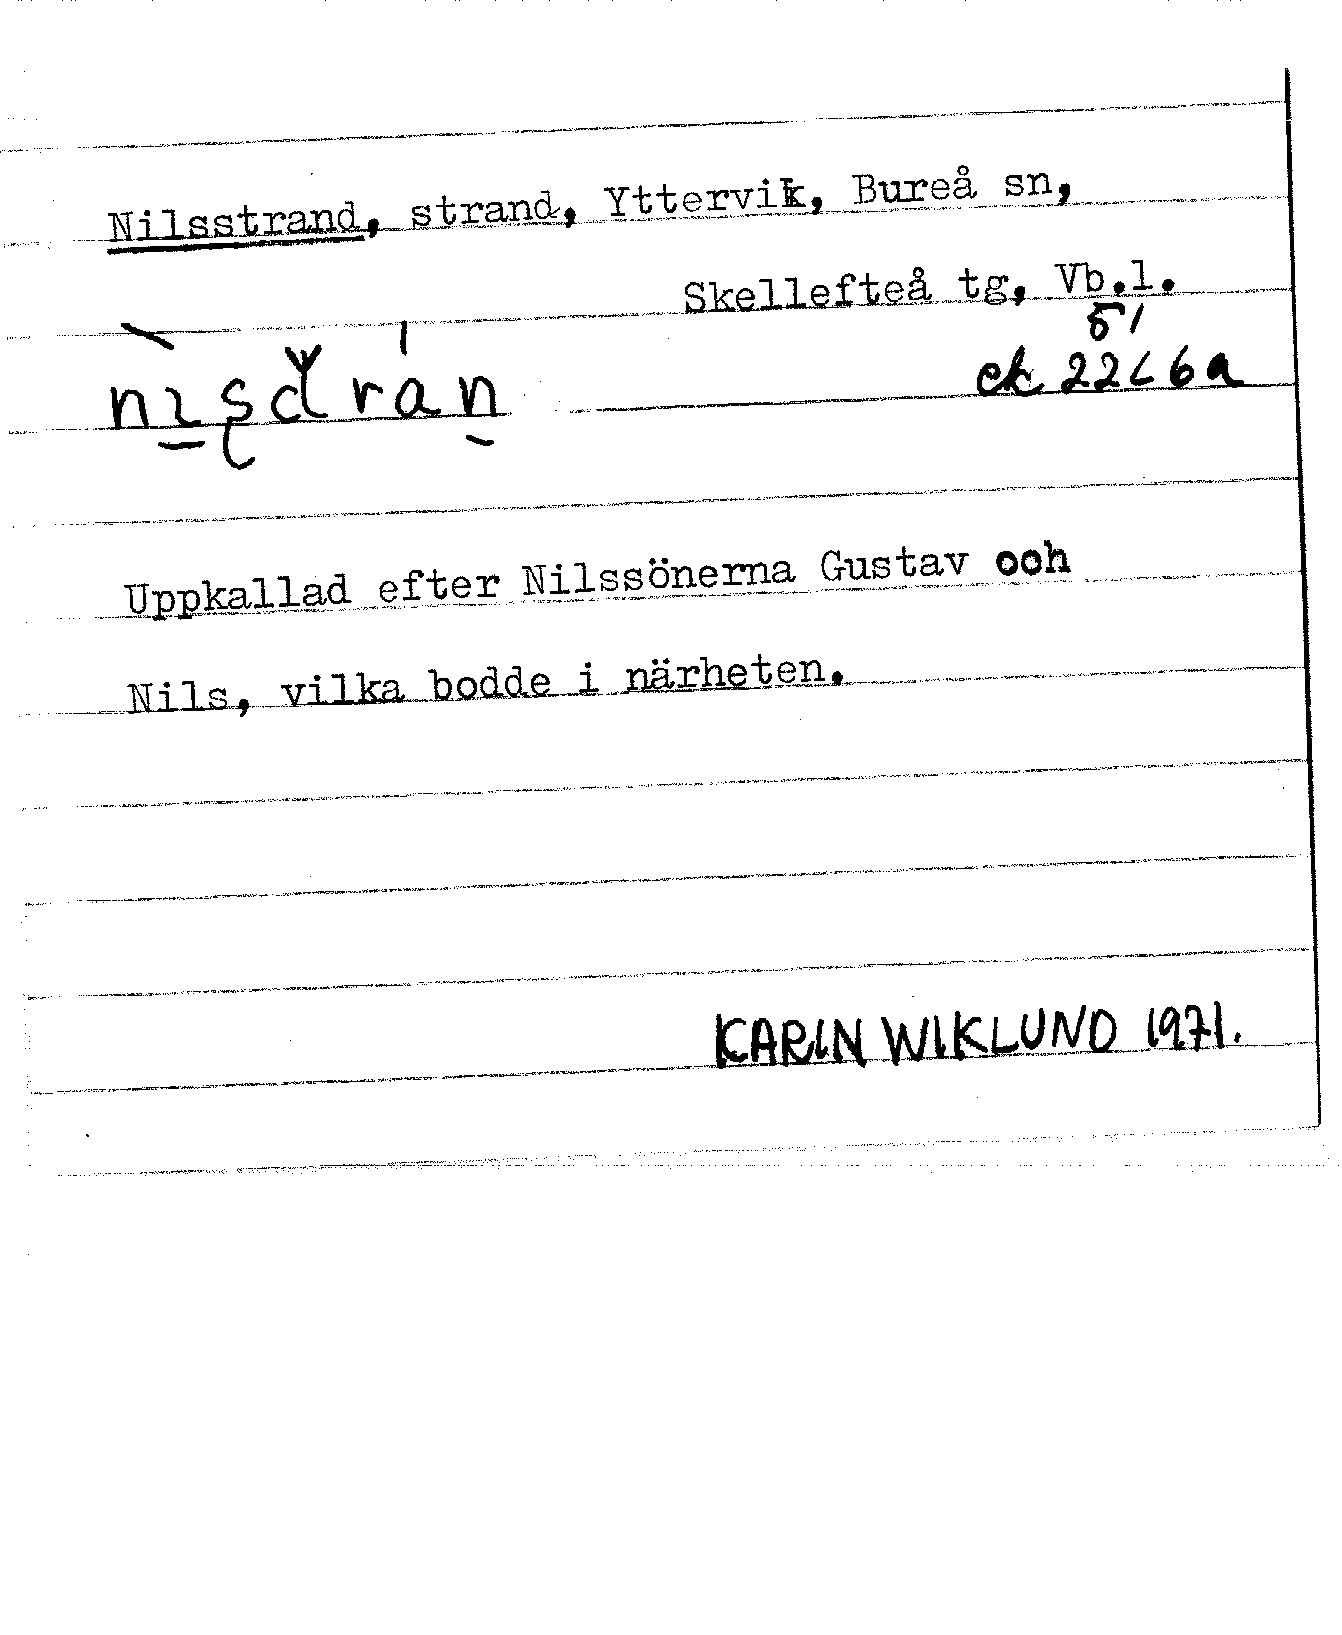 Nilsstrand, strand, Yttervik, Bureå sn,
Skellefteå tg, Vb.l.
51
ek 2266a
Uppkallad efter Nilssönerna Gustav och
Nils, vilka bodde i närheten.
KARIN WIKLUND 1971.